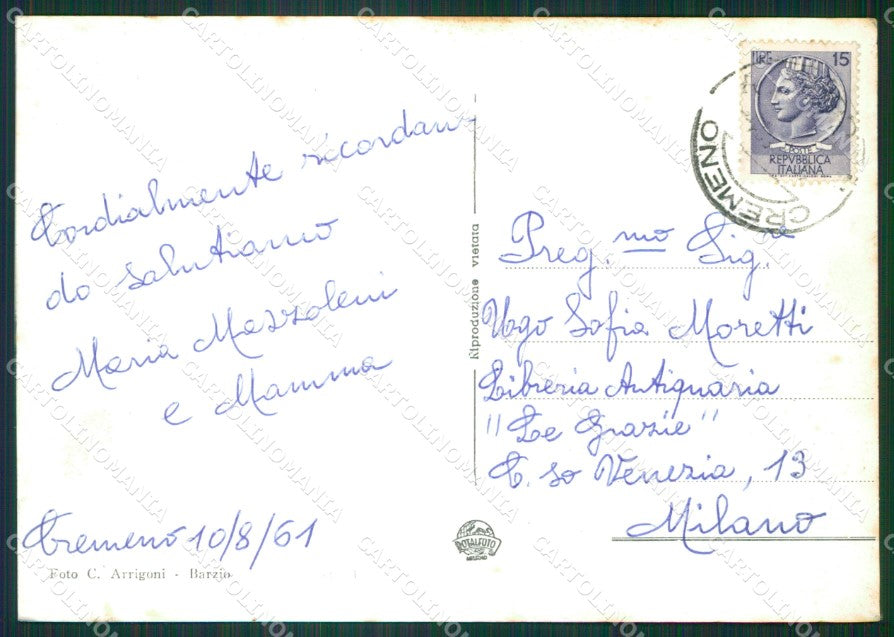 Cordialmente ricordan-
do salutiamo
Maria Mazzoleni
e Mamma
Cremeno 10/8/61
Foto C. Arrigoni - Barzio
Riproduzione vietata
ROTALFOTO
MILANO
LIRE 15
POSTE
REPVBBLICA
ITALIANA
CREMENO
Preg.mo Sig.
Ugo Sofia Moretti
Libreria Antiquaria
"Le Grazie"
C.so Venezia, 13
Milano
CARTOLINOMANIA